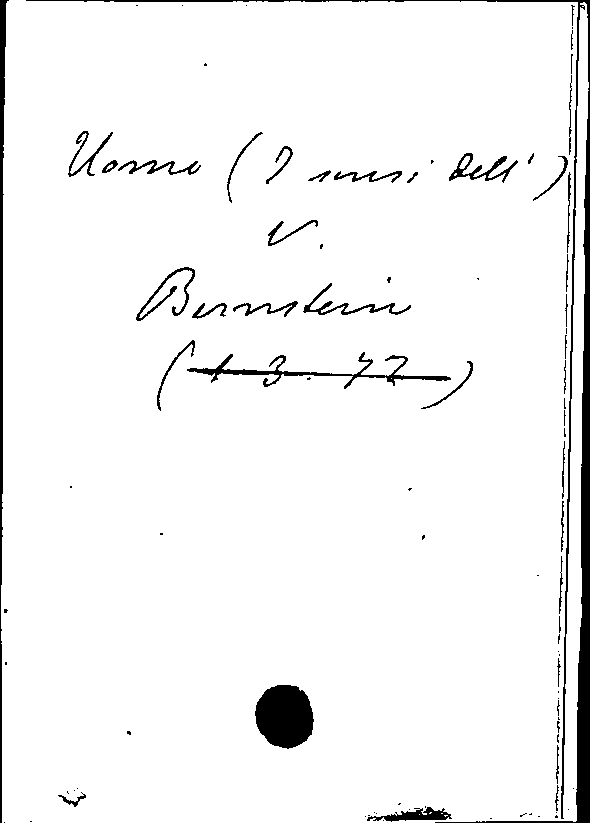 Uomo (I sensi dell')
v.
Bernstein
(1. 3. 72)